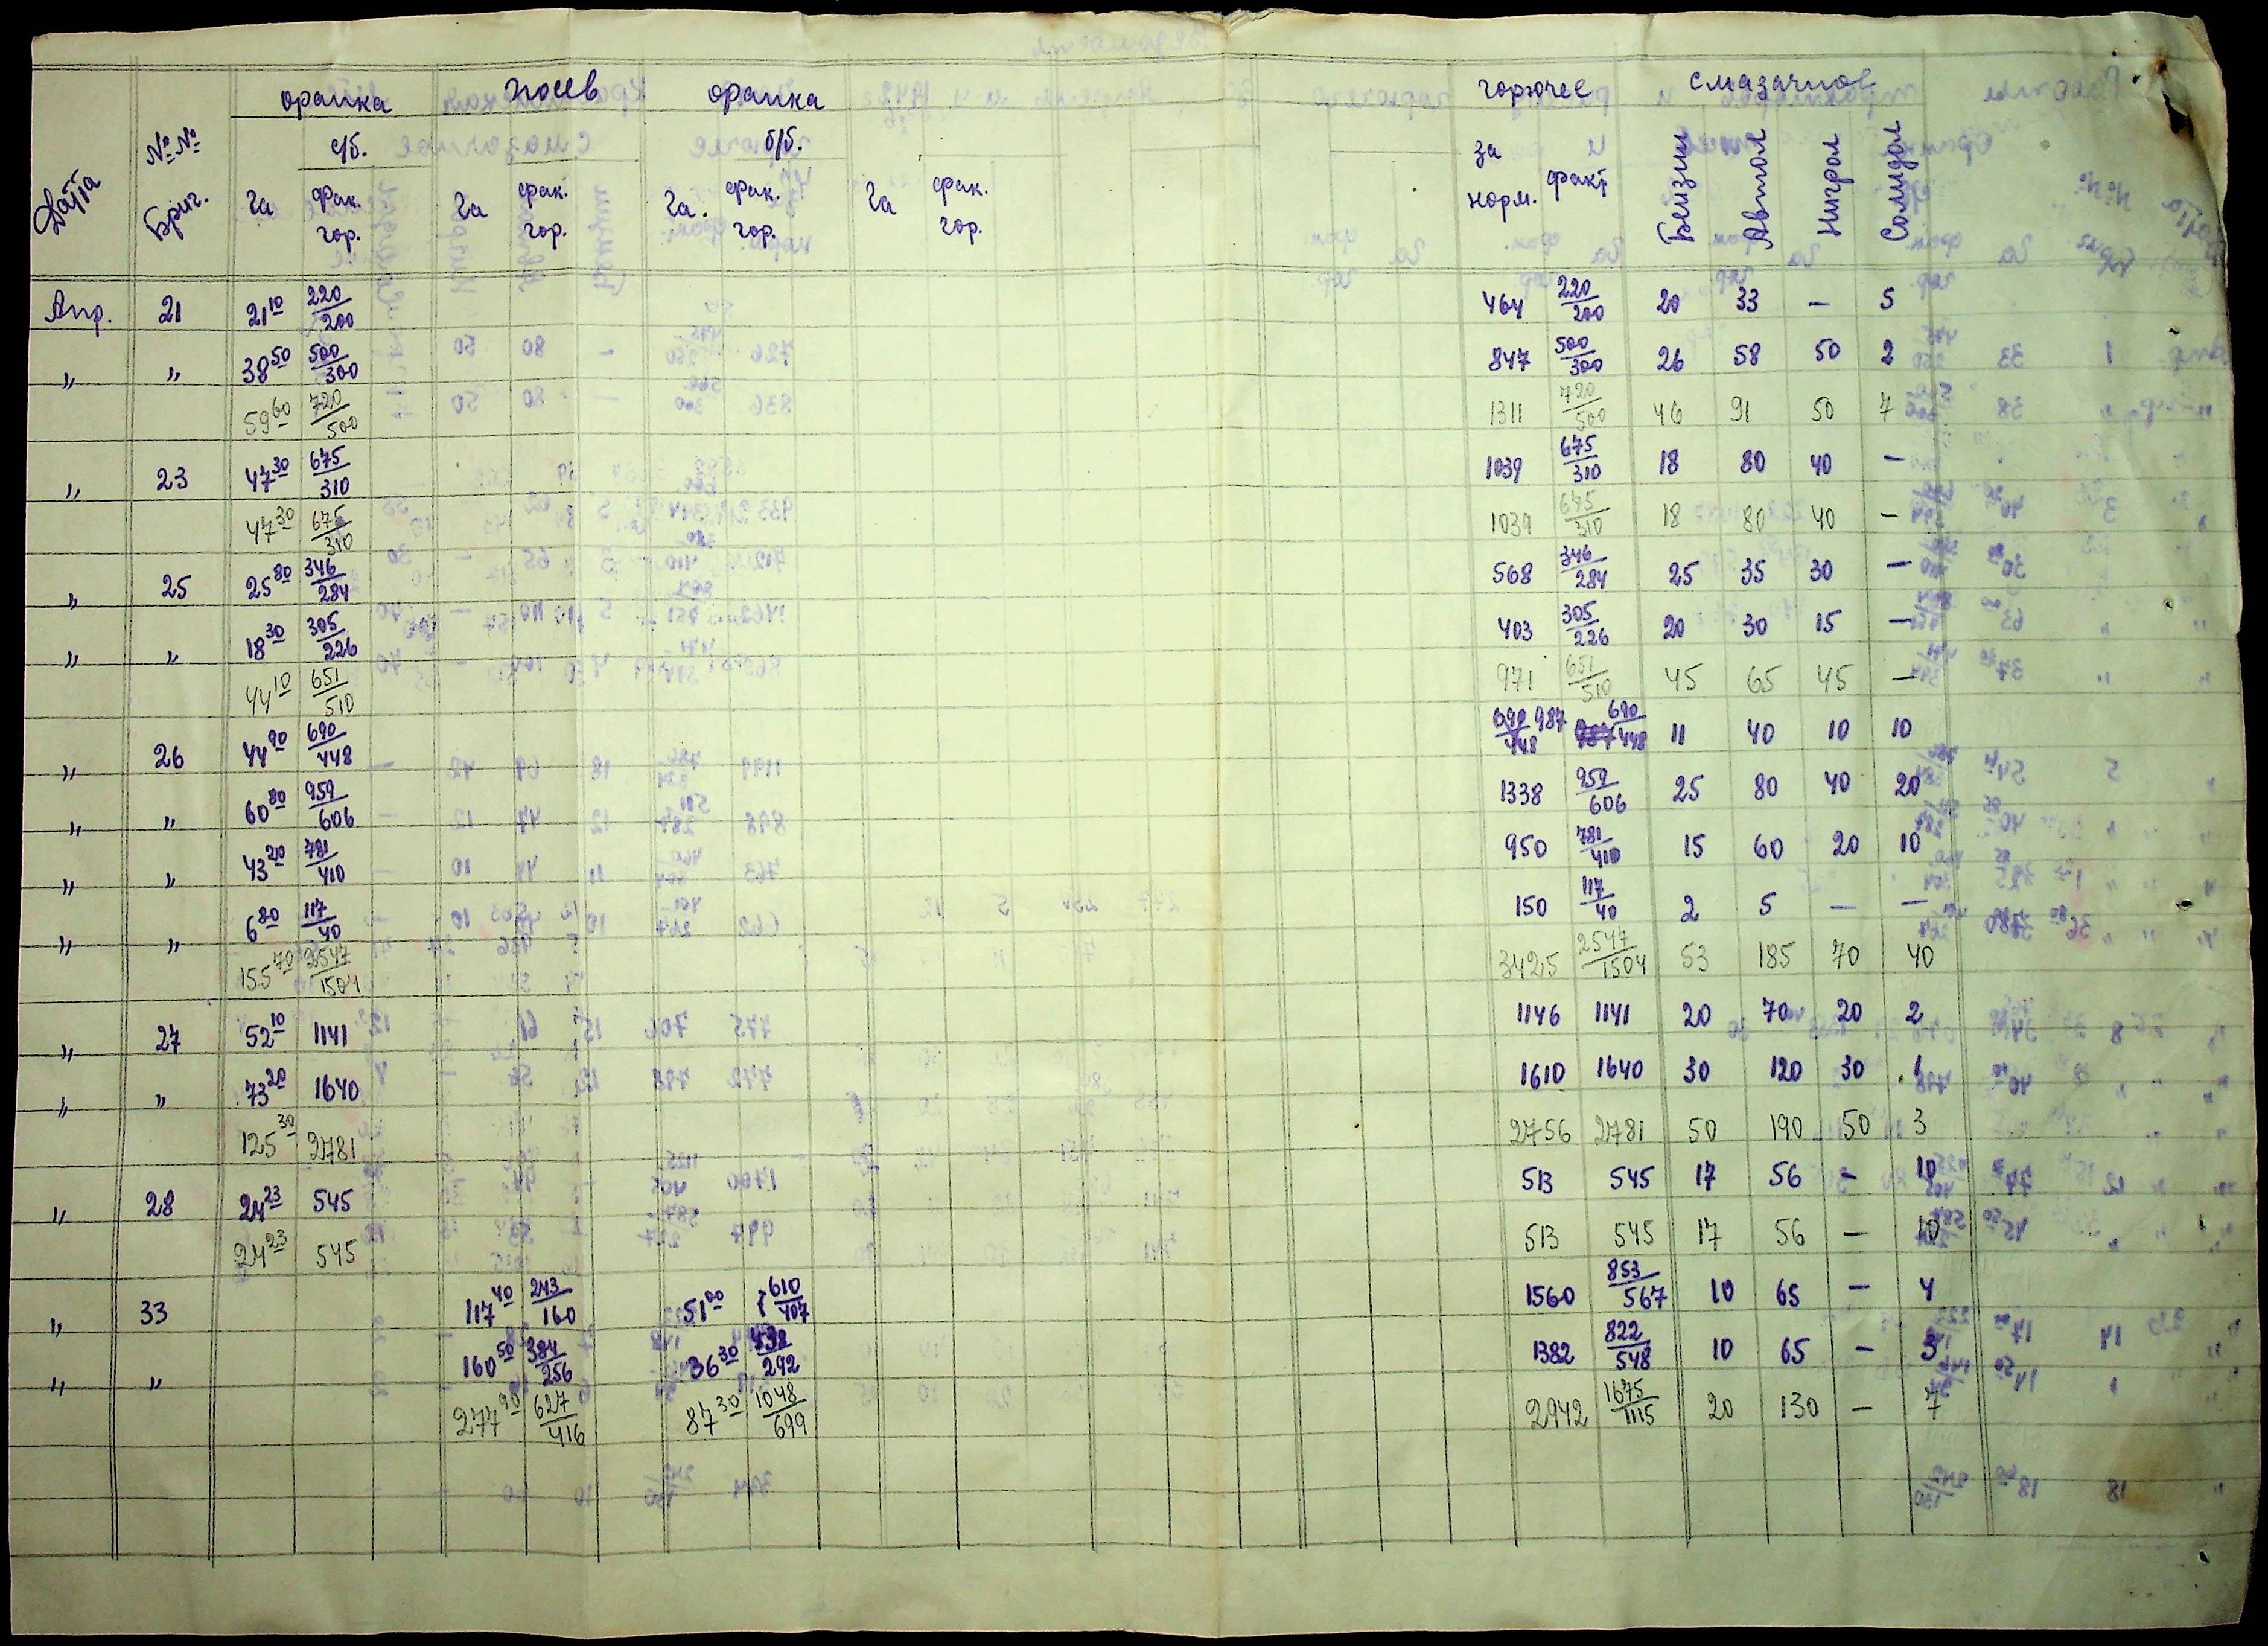 оранка посев оранка горючее смазачное
Дата №№ Бриг. с/б. б/б.
Га Фак. гор. Га Фак. гор. Га. Фак. гор. Га Фак. гор. за норм. факт Бензин Автол Нигрол Солидол
Апр. 21 21 10 220/200 464 220/200 20 33 — 5
" " 38 50 500/300 847 500/300 26 58 50 2
59 60 720/500 1311 720/500 46 91 50 7
" 23 47 30 675/310 1039 675/310 18 80 40 —
47 30 675/310 1039 675/310 18 80 40 —
" 25 25 80 346/284 568 346/284 25 35 30 —
" " 18 30 305/226 403 305/226 20 30 15 —
44 10 651/510 971 651/510 45 65 45 —
" 26 44 90 690/448 987 690/448 11 40 10 10
" " 60 80 959/606 1338 959/606 25 80 40 20
" " 43 20 781/410 950 781/410 15 60 20 10
" " 6 80 117/40 150 117/40 2 5 — —
155 70 2547/1504 3425 2547/1504 53 185 70 40
" 27 52 10 1141 1146 1141 20 70 20 2
" " 73 20 1640 1610 1640 30 120 30 1
125 30 2781 2756 2781 50 190 50 3
" 28 24 23 545 513 545 17 56 — 10
24 23 545 513 545 17 56 — 10
" 33 117 40 243/160 51 00 610/407 1560 853/567 10 65 — 4
" " 160 50 384/256 36 30 438/292 1382 822/548 10 65 — 3
277 90 627/416 87 30 1048/699 2942 1675/1115 20 130 — 7